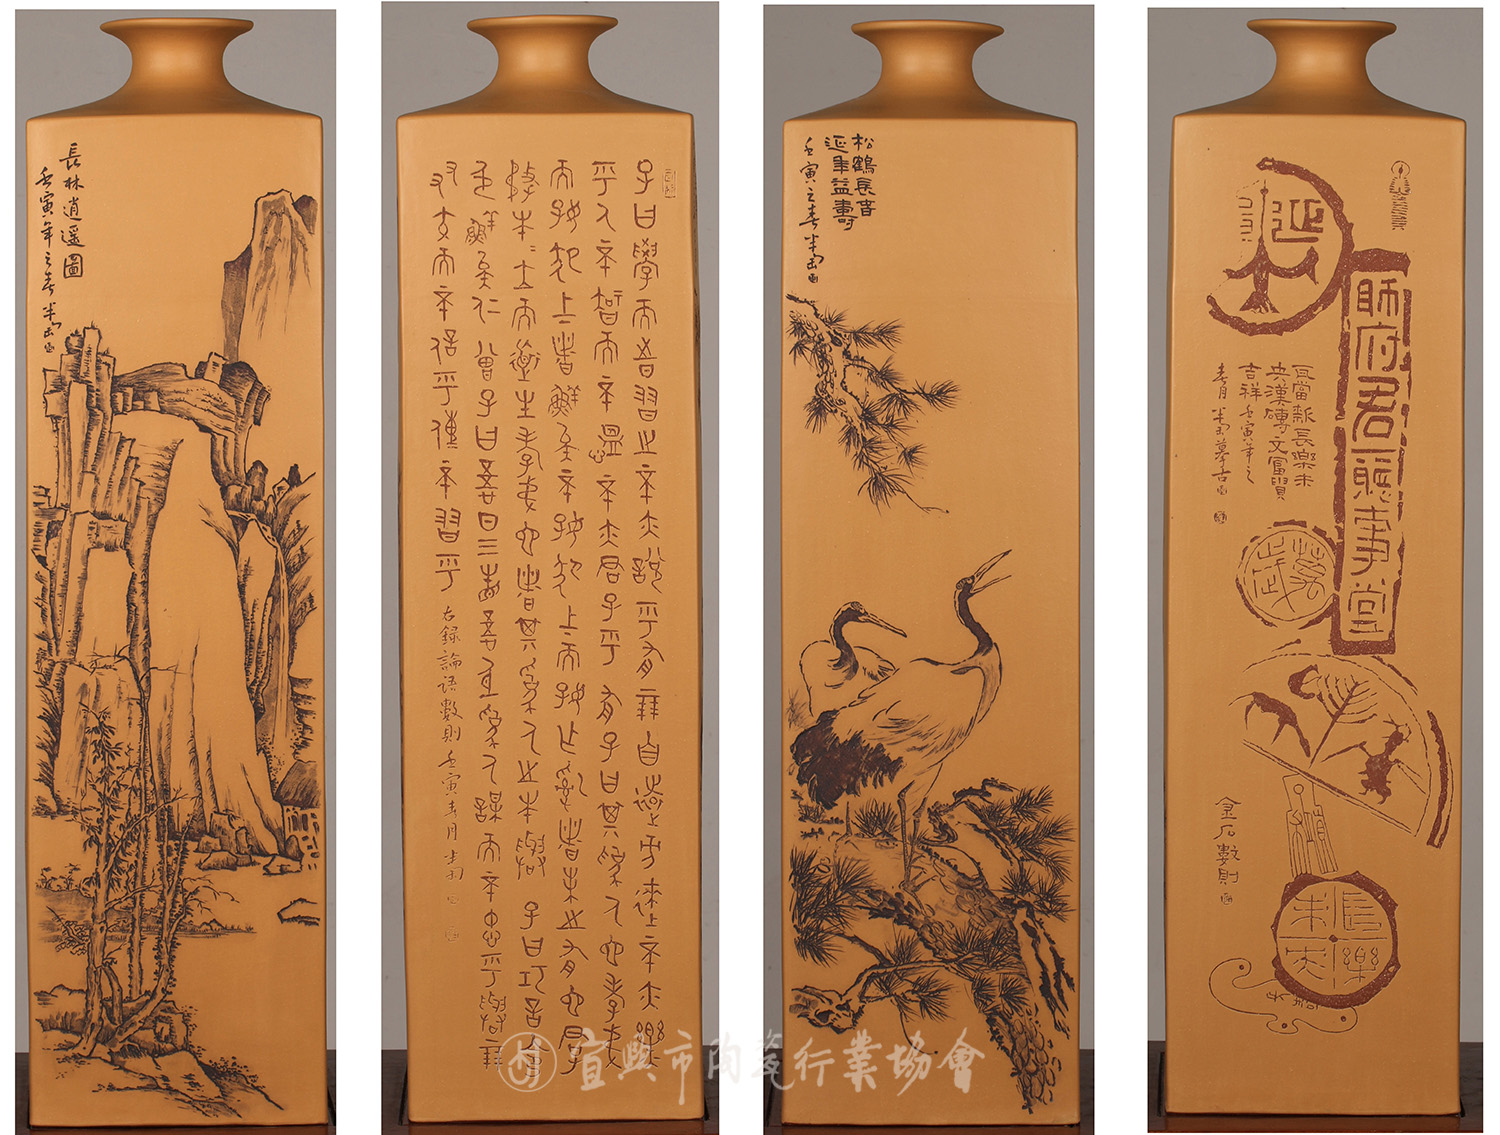 長林逍遥圖
壬寅年之春半
子曰學而時習之不亦說乎有朋自遠方來不亦樂
乎人不知而不愠不亦君子乎有子曰其為人也孝弟
而好犯上者鮮矣不好犯上而好作亂者未之有也君
務本〻立而道生孝弟也者其為人之本與子曰巧言令
色鮮矣仁曾子曰吾日三省吾身為人謀而不忠乎與朋
友交而不信乎傳不習乎
右録論語數則壬寅春月半
松鶴長春
延年益壽
壬寅之春半
延年
府君聽事堂
瓦當新長樂未
央漢磚文富貴
吉祥壬寅年之
春月半摹古
萬歲
金石數則
長樂未央
宜興市陶瓷行業協會